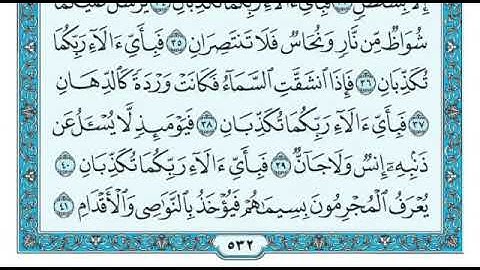 إِلَّا بِسُلْطَٰنٍ ۝٣٣ فَبِأَيِّ ءَالَآءِ رَبِّكُمَا تُكَذِّبَانِ ۝٣٤ يُرْسَلُ عَلَيْكُمَا
شُوَاظٌ مِّن نَّارٍ وَنُحَاسٌ فَلَا تَنتَصِرَانِ ۝٣٥ فَبِأَيِّ ءَالَآءِ رَبِّكُمَا
تُكَذِّبَانِ ۝٣٦ فَإِذَا ٱنشَقَّتِ ٱلسَّمَآءُ فَكَانَتْ وَرْدَةً كَٱلدِّهَانِ
۝٣٧ فَبِأَيِّ ءَالَآءِ رَبِّكُمَا تُكَذِّبَانِ ۝٣٨ فَيَوْمَئِذٍ لَّا يُسْـَٔلُ عَن
ذَنۢبِهِۦٓ إِنسٌ وَلَا جَآنٌّ ۝٣٩ فَبِأَيِّ ءَالَآءِ رَبِّكُمَا تُكَذِّبَانِ ۝٤٠
يُعْرَفُ ٱلْمُجْرِمُونَ بِسِيمَٰهُمْ فَيُؤْخَذُ بِٱلنَّوَٰصِي وَٱلْأَقْدَامِ ۝٤١
٥٣٢